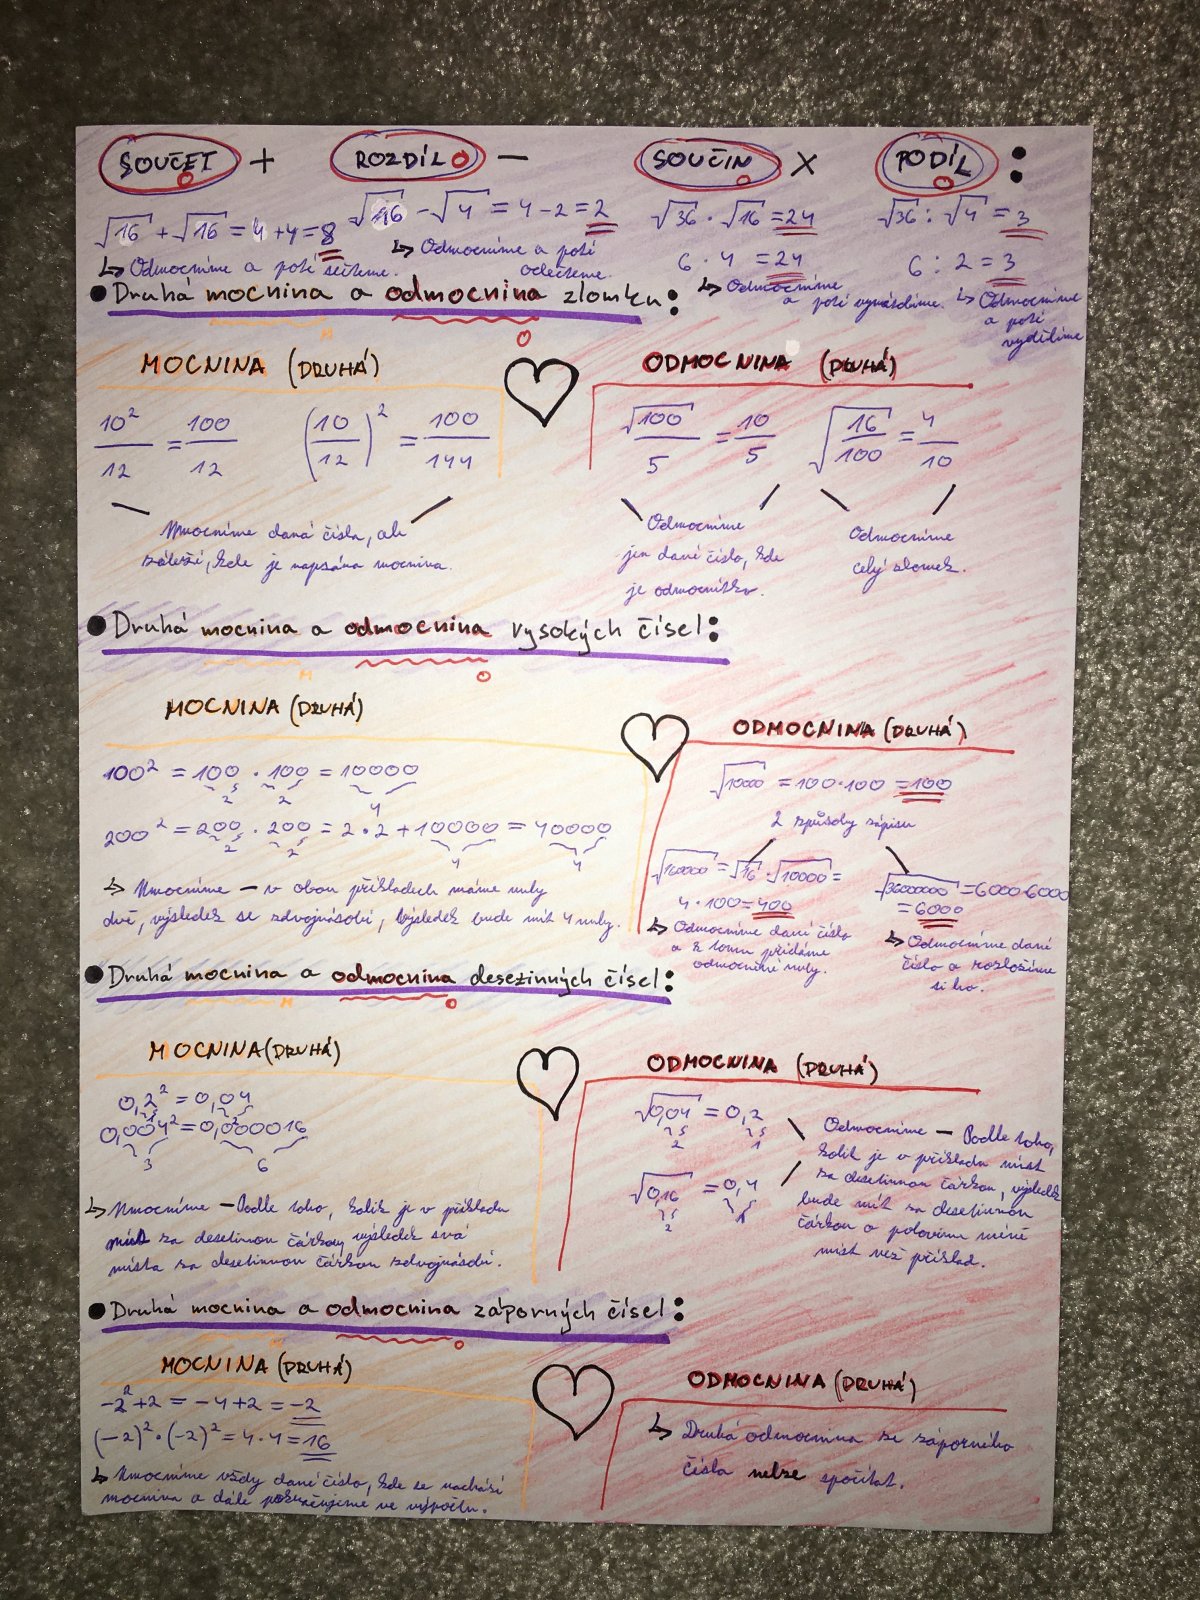 SOUČET + ROZDÍL - SOUČIN × PODÍL :
√16 + √16 = 4 + 4 = 8
↳ Odmocníme a poté sečteme.
√16 - √4 = 4 - 2 = 2
↳ Odmocníme a poté
odečteme.
√36 · √16 = 24
6 · 4 = 24
↳ Odmocníme
a poté vynásobíme.
√36 : √4 = 3
6 : 2 = 3
↳ Odmocníme
a poté
vydělíme
• Druhá mocnina a odmocnina zlomku:
M O
MOCNINA (DRUHÁ)
10²/12 = 100/12 (10/12)² = 100/144
Umocníme daná čísla, ale
záleží, kde je napsána mocnina.
ODMOCNINA (DRUHÁ)
√100/5 = 10/5 √(16/100) = 4/10
Odmocníme
jen dané číslo, kde
je odmocnítko.
Odmocníme
celý zlomek.
• Druhá mocnina a odmocnina vysokých čísel:
M O
MOCNINA (DRUHÁ)
100² = 100 · 100 = 10000
2 2 4
200² = 200 · 200 = 2 · 2 + 10000 = 40000
2 2 4 4
↳ Umocníme - v obou příkladech máme nuly
dvě, výsledek se zdvojnásobí, výsledek bude mít 4 nuly.
ODMOCNINA (DRUHÁ)
√10000 = 100·100 = 100
2 způsoby zápisu
√160000 = √16 · √10000 =
4 · 100 = 400
↳ Odmocníme dané číslo
a k tomu přidáme
odmocněné nuly.
√36000000 = 6000·6000
= 6000
↳ Odmocníme dané
číslo a rozložíme
si ho.
• Druhá mocnina a odmocnina desezinných čísel:
M O
MOCNINA (DRUHÁ)
0,2² = 0,04
1 2
0,004² = 0,000016
3 6
↳ Umocníme - Podle toho, kolik je v příkladu
míst za desetinnou čárkou, výsledek svá
místa za desetinnou čárkou zdvojnásobí.
ODMOCNINA (DRUHÁ)
√0,04 = 0,2
2 1
√0,16 = 0,4
2 1
Odmocníme - Podle toho,
kolik je v příkladu míst
za desetinnou čárkou, výsledek
bude mít za desetinnou
čárkou o polovinu méně
míst než příklad.
• Druhá mocnina a odmocnina záporných čísel:
O
MOCNINA (DRUHÁ)
-2² + 2 = -4 + 2 = -2
(-2)² · (-2)² = 4 · 4 = 16
↳ Umocníme vždy dané číslo, kde se nachází
mocnina a dále pokračujeme ve výpočtu.
ODMOCNINA (DRUHÁ)
↳ Druhá odmocnina ze záporného
čísla nelze spočítat.